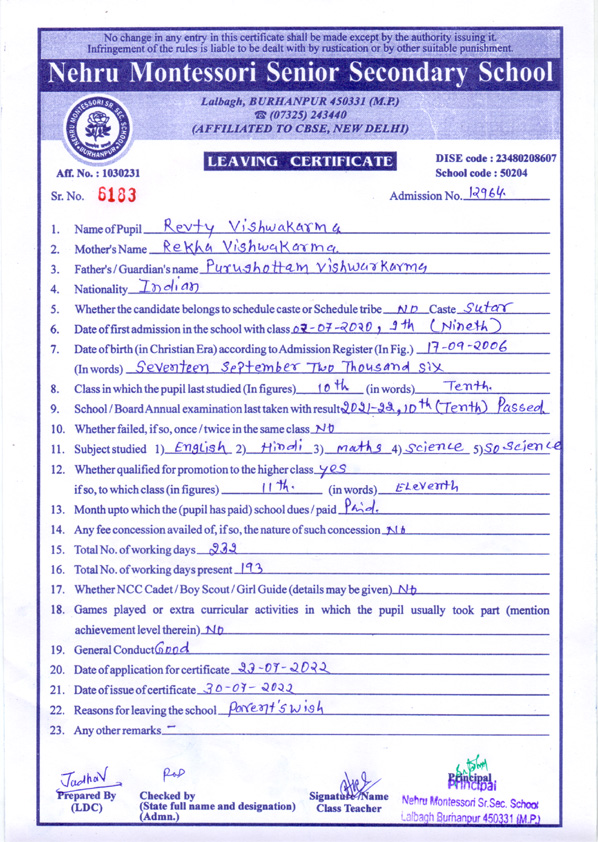 No change in any entry in this certificate shall be made except by the authority issuing it.
Infringement of the rules is liable to be dealt with by rustication or by other suitable punishment.
Nehru Montessori Senior Secondary School
Lalbagh, BURHANPUR 450331 (M.P.)
☎ (07325) 243440
(AFFILIATED TO CBSE, NEW DELHI)
NEHRU MONTESSORI SR. SEC. SCHOOL
BURHANPUR
LEAVING CERTIFICATE
DISE code : 23480208607
Aff. No. : 1030231 School code : 50204
Sr. No. 6183 Admission No. 12964
1. Name of Pupil Revty Vishwakarma
2. Mother's Name Rekha Vishwakarma
3. Father's / Guardian's name Purushottam Vishwarkarma
4. Nationality Indian
5. Whether the candidate belongs to schedule caste or Schedule tribe NO Caste Sutar
6. Date of first admission in the school with class 02-07-2020, 9th (Nineth)
7. Date of birth (in Christian Era) according to Admission Register (In Fig.) 17-09-2006
(In words) Seventeen September Two Thousand Six
8. Class in which the pupil last studied (In figures) 10th (in words) Tenth.
9. School / Board Annual examination last taken with result 2021-22, 10th (Tenth) Passed
10. Whether failed, if so, once / twice in the same class No
11. Subject studied 1) English 2) Hindi 3) maths 4) Science 5) So science
12. Whether qualified for promotion to the higher class yes
if so, to which class (in figures) 11th. (in words) Eleventh
13. Month upto which the (pupil has paid) school dues / paid Paid.
14. Any fee concession availed of, if so, the nature of such concession No
15. Total No. of working days 232
16. Total No. of working days present 193
17. Whether NCC Cadet / Boy Scout / Girl Guide (details may be given) No
18. Games played or extra curricular activities in which the pupil usually took part (mention
achievement level therein) No
19. General Conduct Good
20. Date of application for certificate 23-07-2022
21. Date of issue of certificate 30-07-2022
22. Reasons for leaving the school Parent's wish
23. Any other remarks -
Jadhav
Prepared By
(LDC)
Checked by
(State full name and designation)
(Admn.)
Signature/Name
Class Teacher
Principal
Principal
Nehru Montessori Sr.Sec. School
Lalbagh Burhanpur 450331 (M.P.)